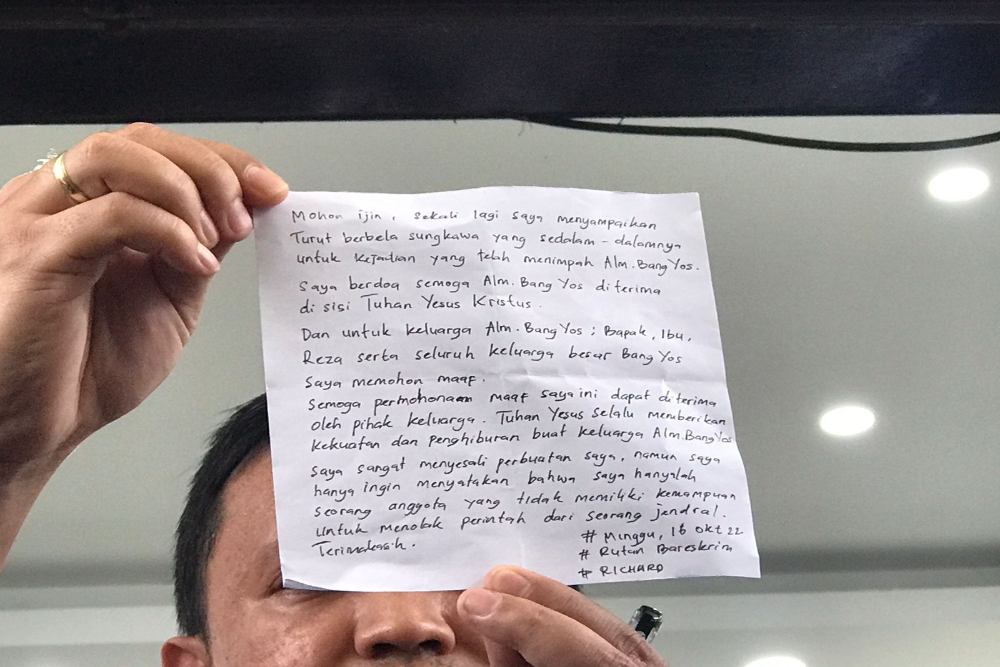 Mohon ijin, sekali lagi saya menyampaikan
Turut berbela sungkawa yang sedalam-dalamnya
untuk kejadian yang telah menimpah Alm. Bang Yos.
Saya berdoa semoga Alm. Bang Yos diterima
di sisi Tuhan Yesus Kristus.
Dan untuk keluarga Alm. Bang Yos ; Bapak, Ibu,
Reza serta seluruh keluarga besar Bang Yos
Saya memohon maaf.
Semoga permohonaan maaf saya ini dapat diterima
oleh pihak keluarga. Tuhan Yesus selalu memberikan
kekuatan dan penghiburan buat keluarga Alm. Bang Yos
Saya sangat menyesali perbuatan saya, namun saya
hanya ingin menyatakan bahwa saya hanyalah
seorang anggota yang tidak memiliki kemampuan
untuk menolak perintah dari seorang jendral.
Terimakasih.
# Minggu, 16 Okt 22
# Rutan Bareskrim
# RICHARD